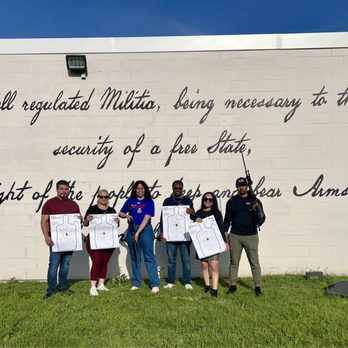 ell regulated Militia, being necessary to th
security of a free State,
ght of the people to keep and bear Arms